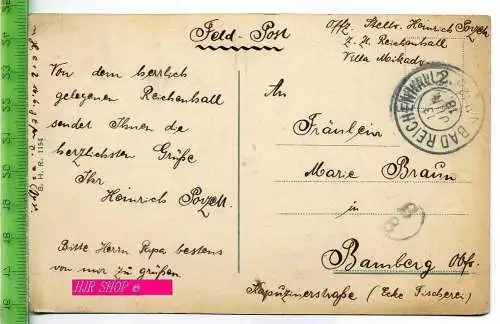 Feld-Post
Offz. Stellv. Heinrich
z. Zt. Reichenhall
Villa Mikado
Von dem herrlich
gelegenen Reichenhall
sendet Ihnen die
herzlichsten Grüße
Ihr
Heinrich
Bitte Herrn Papa bestens
von mir zu grüßen.
An
Fräulein
Marie Braun
in
Bamberg Obfr.
Kapuzinerstraße (Ecke Fischerei)
BAD REICHENHALL 2.
B. H. R. 1154
HJR SHOP ©